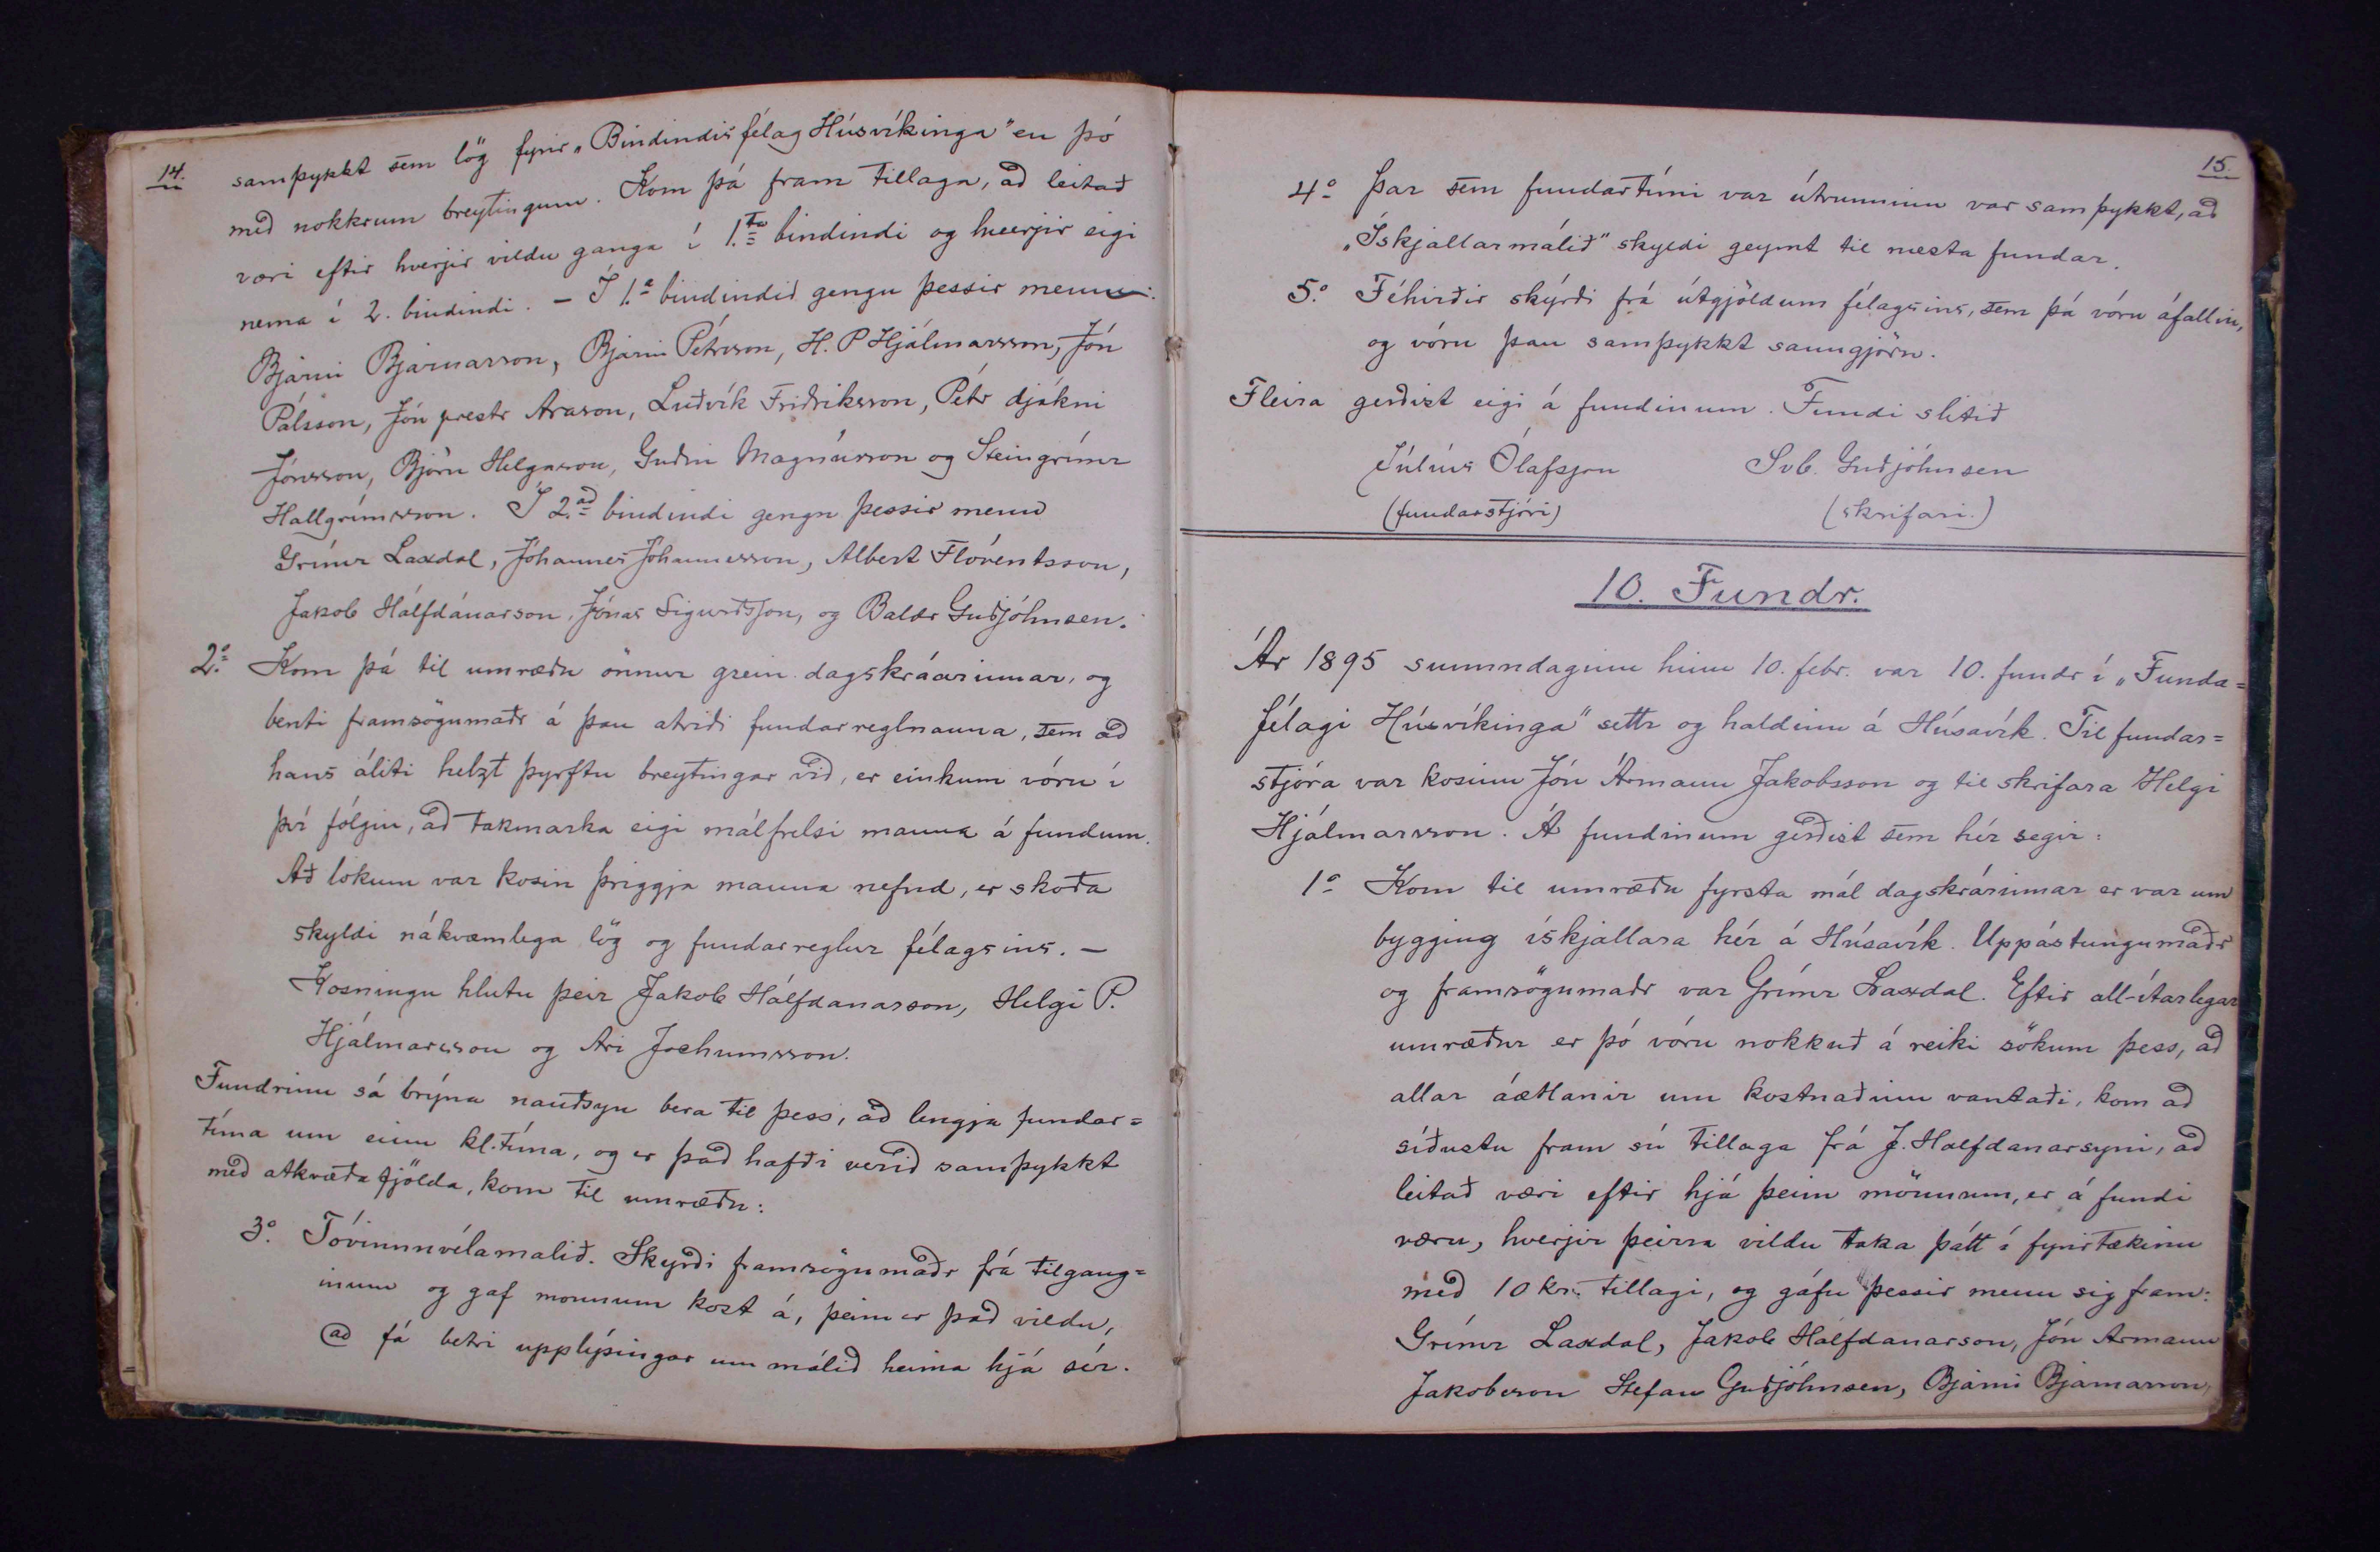 14.
samþykkt sem lög fyrir „Bindindisfélag Húsvíkinga" en þó
með nokkrum breytingum. Kom þá fram tillaga, að leitað
væri eftir hverjir vildu ganga í 1.ta bindindi og hverjir eigi
nema í 2. bindindi. – Í 1.a bindindið gengu þessir menn:
Bjarni Bjarnarson, Bjarni Pétrsson, H. P Hjálmarsson, Jón
Pálsson, Jón prestr Arason, Luðvík Friðriksson, Pétr djákni
Jónsson, Björn Helgason, Guðni Magnússon og Steingrímr
Hallgrímsson. Í 2.að bindindi gengu þessir menn
Grímr Laxdal, Jóhannes Jóhannesson, Albert Flóventsson,
Jakob Hálfdánarson, Jónas Sigurðsson, og Baldr Guðjóhnsen.
2.o Kom þá til umræðu önnur grein dagskráarinnar, og
benti framsögumaðr á þau atriði fundarreglnanna, sem að
hans áliti helzt þyrftu breytingar við, er einkum vóru í
því fólgin, að takmarka eigi málfrelsi manna á fundum.
Að lokum var kosin þriggja manna nefnd, er skoða
skyldi nákvæmlega lög og fundarreglur félagsins. –
Kosningu hlutu þeir Jakob Hálfdanarson, Helgi P.
Hjálmarsson og Ari Jochumsson.
Fundrinn sá brýna nauðsyn bera til þess, að lengja fundar=
tíma um einn kl.tíma, og er það hafði verið samþykkt
með atkvæða fjölda, kom til umræðu:
3.o Tóvinnuvélamalið. Skýrði framsögumaðr frá tilgang=
inum og gaf mönnum kost á, þeim er það vildu,
að fá betri upplýsingar um málið heima hjá sér.
15.
4.o Þar sem fundartími var útrunninn var samþykkt, að
„Ískjallarmálið" skyldi geymt til næsta fundar.
5.o Féhirðir skýrði frá útgjöldum félagsins, sem þá vóru áfallin,
og vóru þau samþykkt sanngjörn.
Fleira gerðist eigi á fundinum. Fundi slitið
Júlíus Ólafsson Svb. Guðjóhnsen
(fundarstjóri) (skrifari.)
10. Fundr.
Ár 1895 sunnudaginn hinn 10. febr. var 10. fundr í „Funda=
félagi Húsvíkinga" settr og haldinn á Húsavík. Til fundar=
stjóra var kosinn Jón Ármann Jakobsson og til skrifara Helgi
Hjálmarsson. Á fundinum gerðist sem hér segir:
1.o Kom til umræðu fyrsta mál dagskrárinnar er var um
bygging ískjallara hér á Húsavík. Uppástungumaðr
og framsögumaðr var Grímr Laxdal. Eftir all-ítarlegar
umræður er þó vóru nokkuð á reiki sökum þess, að
allar áætlanir um kostnaðinn vantaði, kom að
síðustu fram sú tillaga frá J. Halfdanarsyni, að
leitað væri eftir hjá þeim mönnum, er á fundi
væru, hverjir þeirra vildu taka þátt í fyrirtækinu
með 10 kr. tillagi, og gáfu þessir menn sig fram:
Grímr Laxdal, Jakob Hálfdanarson, Jón Armann
Jakobsson Stefan Guðjóhnsen, Bjarni Bjarnarson,